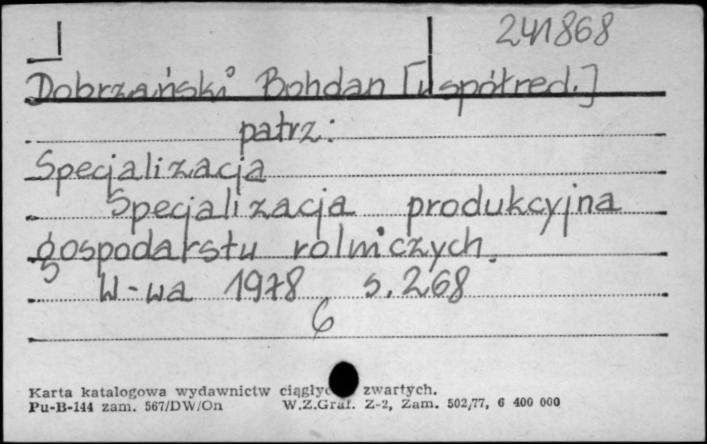 241868
Dobrzański Bohdan [współred.]
patrz:
Specjalizacja
Specjalizacja produkcyjna
gospodarstw rolniczych.
W-wa 1978 s. 268
6
Karta katalogowa wydawnictw zwartych.
Pu-B-144 zam. 567/DW/On W.Z.Graf. Z-2, Zam. 502/77, 6 400 000